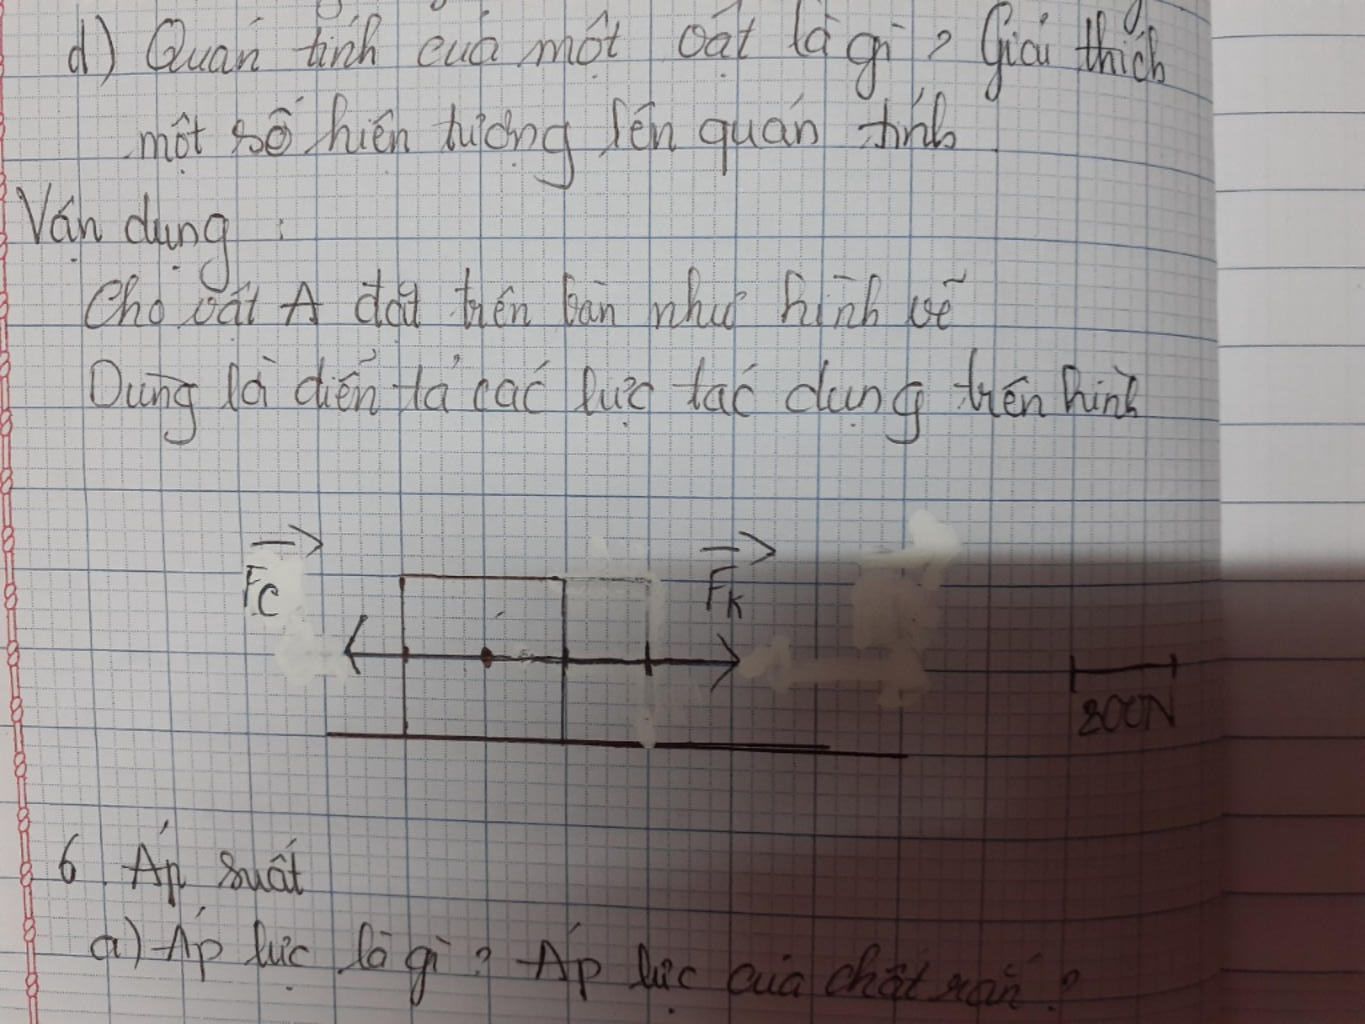 d) Quán tính của một vật là gì? Giải thích
một số hiện tượng lên quán tính
Vận dụng :
Cho vật A đặt trên bàn như hình vẽ
Dùng lời diễn tả các lực tác dụng trên hình
Fc
FK
300N
6. Áp suất
a) Áp lực là gì? Áp lực của chất rắn?